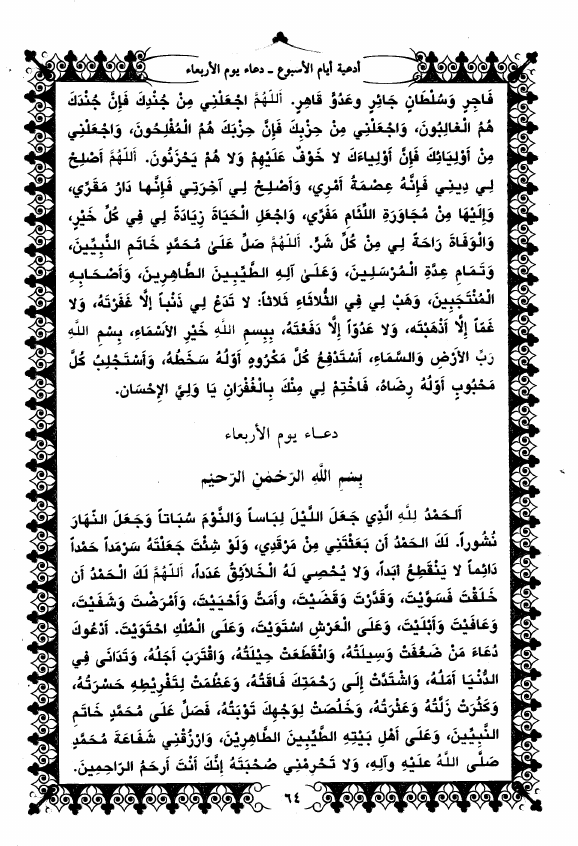 أدعية أيام الأسبوع ـ دعاء يوم الأربعاء
فَاجِرٍ وَسُلْطَانٍ جَائِرٍ وعَدُوٍّ قَاهِرٍ. اَللهُمَّ اجْعَلْنِي مِنْ جُنْدِكَ فَإنَّ جُنْدَكَ
هُمُ الْغَالِبُونَ، وَاجْعَلْنِي مِنْ حِزْبِكَ فَإنَّ حِزْبَكَ هُمُ الْمُفْلِحُونَ، وَاجْعَلْنِي
مِنْ أوْلِيَائِكَ فَإنَّ أوْلِياءَكَ لا خَوْفٌ عَلَيْهِمْ وَلا هُمْ يَحْزَنُونَ. اَللهُمَّ أصْلِحْ
لِي دِينِي فَإنَّهُ عِصْمَةُ أمْرِي، وَأصْلِحْ لِي آخِرَتِي فَإنَّها دَارُ مَقَرِّي،
وَإلَيْهَا مِنْ مُجَاوَرَةِ اللِّئَامِ مَفَرِّي، وَاجْعَلِ الْحَيَاةَ زِيَادَةً لِي فِي كُلِّ خَيْرٍ،
وَالْوَفَاةَ رَاحَةً لِي مِنْ كُلِّ شَرٍّ. اَللهُمَّ صَلِّ عَلَىٰ مُحَمَّدٍ خَاتَمِ النَّبِيِّينَ،
وَتَمَامِ عِدَّةِ الْمُرْسَلِينَ، وَعَلَىٰ آلِهِ الطَّيِّبِينَ الطَّاهِرِينَ، وَأصْحَابِهِ
الْمُنْتَجَبِينَ، وَهَبْ لِي فِي الثُّلاَثَاءِ ثَلاَثاً: لا تَدَعْ لِي ذَنْباً إلَّا غَفَرْتَهُ، وَلا
غَمّاً إلَّا أذْهَبْتَه، وَلا عَدُوّاً إلَّا دَفَعْتَهُ، بِبِسمِ اللهِ خَيْرِ الأسْمَاءِ، بِسْمِ اللهِ
رَبِّ الأرْضِ وَالسَّمَاءِ، أسْتَدْفِعُ كُلَّ مَكْرُوهٍ أوَّلُهُ سَخَطُهُ، وَأسْتَجْلِبُ كُلَّ
مَحْبُوبٍ أوَّلُهُ رِضَاهُ، فَاخْتِمْ لِي مِنْكَ بِالْغُفْرَانِ يَا وَلِيَّ الإحْسَان.
دعـاء يوم الأربعاء
بِسْمِ اللهِ الرَّحْمٰنِ الرَّحيْمِ
اَلحَمْدُ لِلهِ الَّذِي جَعَلَ اللَّيْلَ لِبَاساً وَالنَّوْمَ سُبَاتاً وَجَعَلَ النَّهَارَ
نُشُوراً. لَكَ الحَمْدُ أن بَعَثْتَنِي مِنْ مَرْقَدِي، وَلَوْ شِئْتَ جَعَلْتَهُ سَرْمَداً حَمْداً
دَائِماً لا يَنْقَطِعُ أبَداً، وَلا يُحْصِي لَهُ الْخَلائِقُ عَدَداً، اَللهُمَّ لَكَ الْحَمْدُ أن
خَلَقْتَ فَسَوَّيْتَ، وَقَدَّرْتَ وَقَضَيْتَ، وأمَتَّ وأحْيَيْتَ، وَأمْرَضْتَ وَشَفَيْتَ،
وَعَافَيْتَ وَأبْلَيْتَ، وَعَلَى الْعَرْشِ اسْتَوَيْتَ، وَعَلَى الْمُلْكِ احْتَوَيْتَ. أدْعُوكَ
دُعَاءَ مَنْ ضَعُفَتْ وَسِيلَتُهُ، وَانْقَطَعَتْ حِيْلَتُهُ، وَاقْتَرَبَ أجَلُهُ، وَتَدَانَى فِي
الدُّنْيَا أمَلُهُ، وَاشْتَدَّتْ إلَى رَحْمَتِكَ فَاقَتُهُ، وَعَظُمَتْ لِتَفْرِيطِهِ حَسْرَتُهُ،
وَكَثُرَتْ زَلَّتُهُ وَعَثْرَتُهُ، وَخَلُصَتْ لِوَجْهِكَ تَوْبَتُهُ، فَصَلِّ عَلَى مُحَمَّدٍ خَاتَمِ
النَّبِيِّينَ، وَعَلَى أهْلِ بَيْتِهِ الطَّيِّبِينَ الطَّاهِرِيْنَ، وَارْزُقْنِي شَفَاعَةَ مُحَمَّدٍ
صَلَّى اللهُ عَلَيْهِ وآلِهِ، وَلا تَحْرِمْنِي صُحْبَتَهُ إنَّكَ أنْتَ أرحَمُ الرَّاحِمِينَ.
٦٤